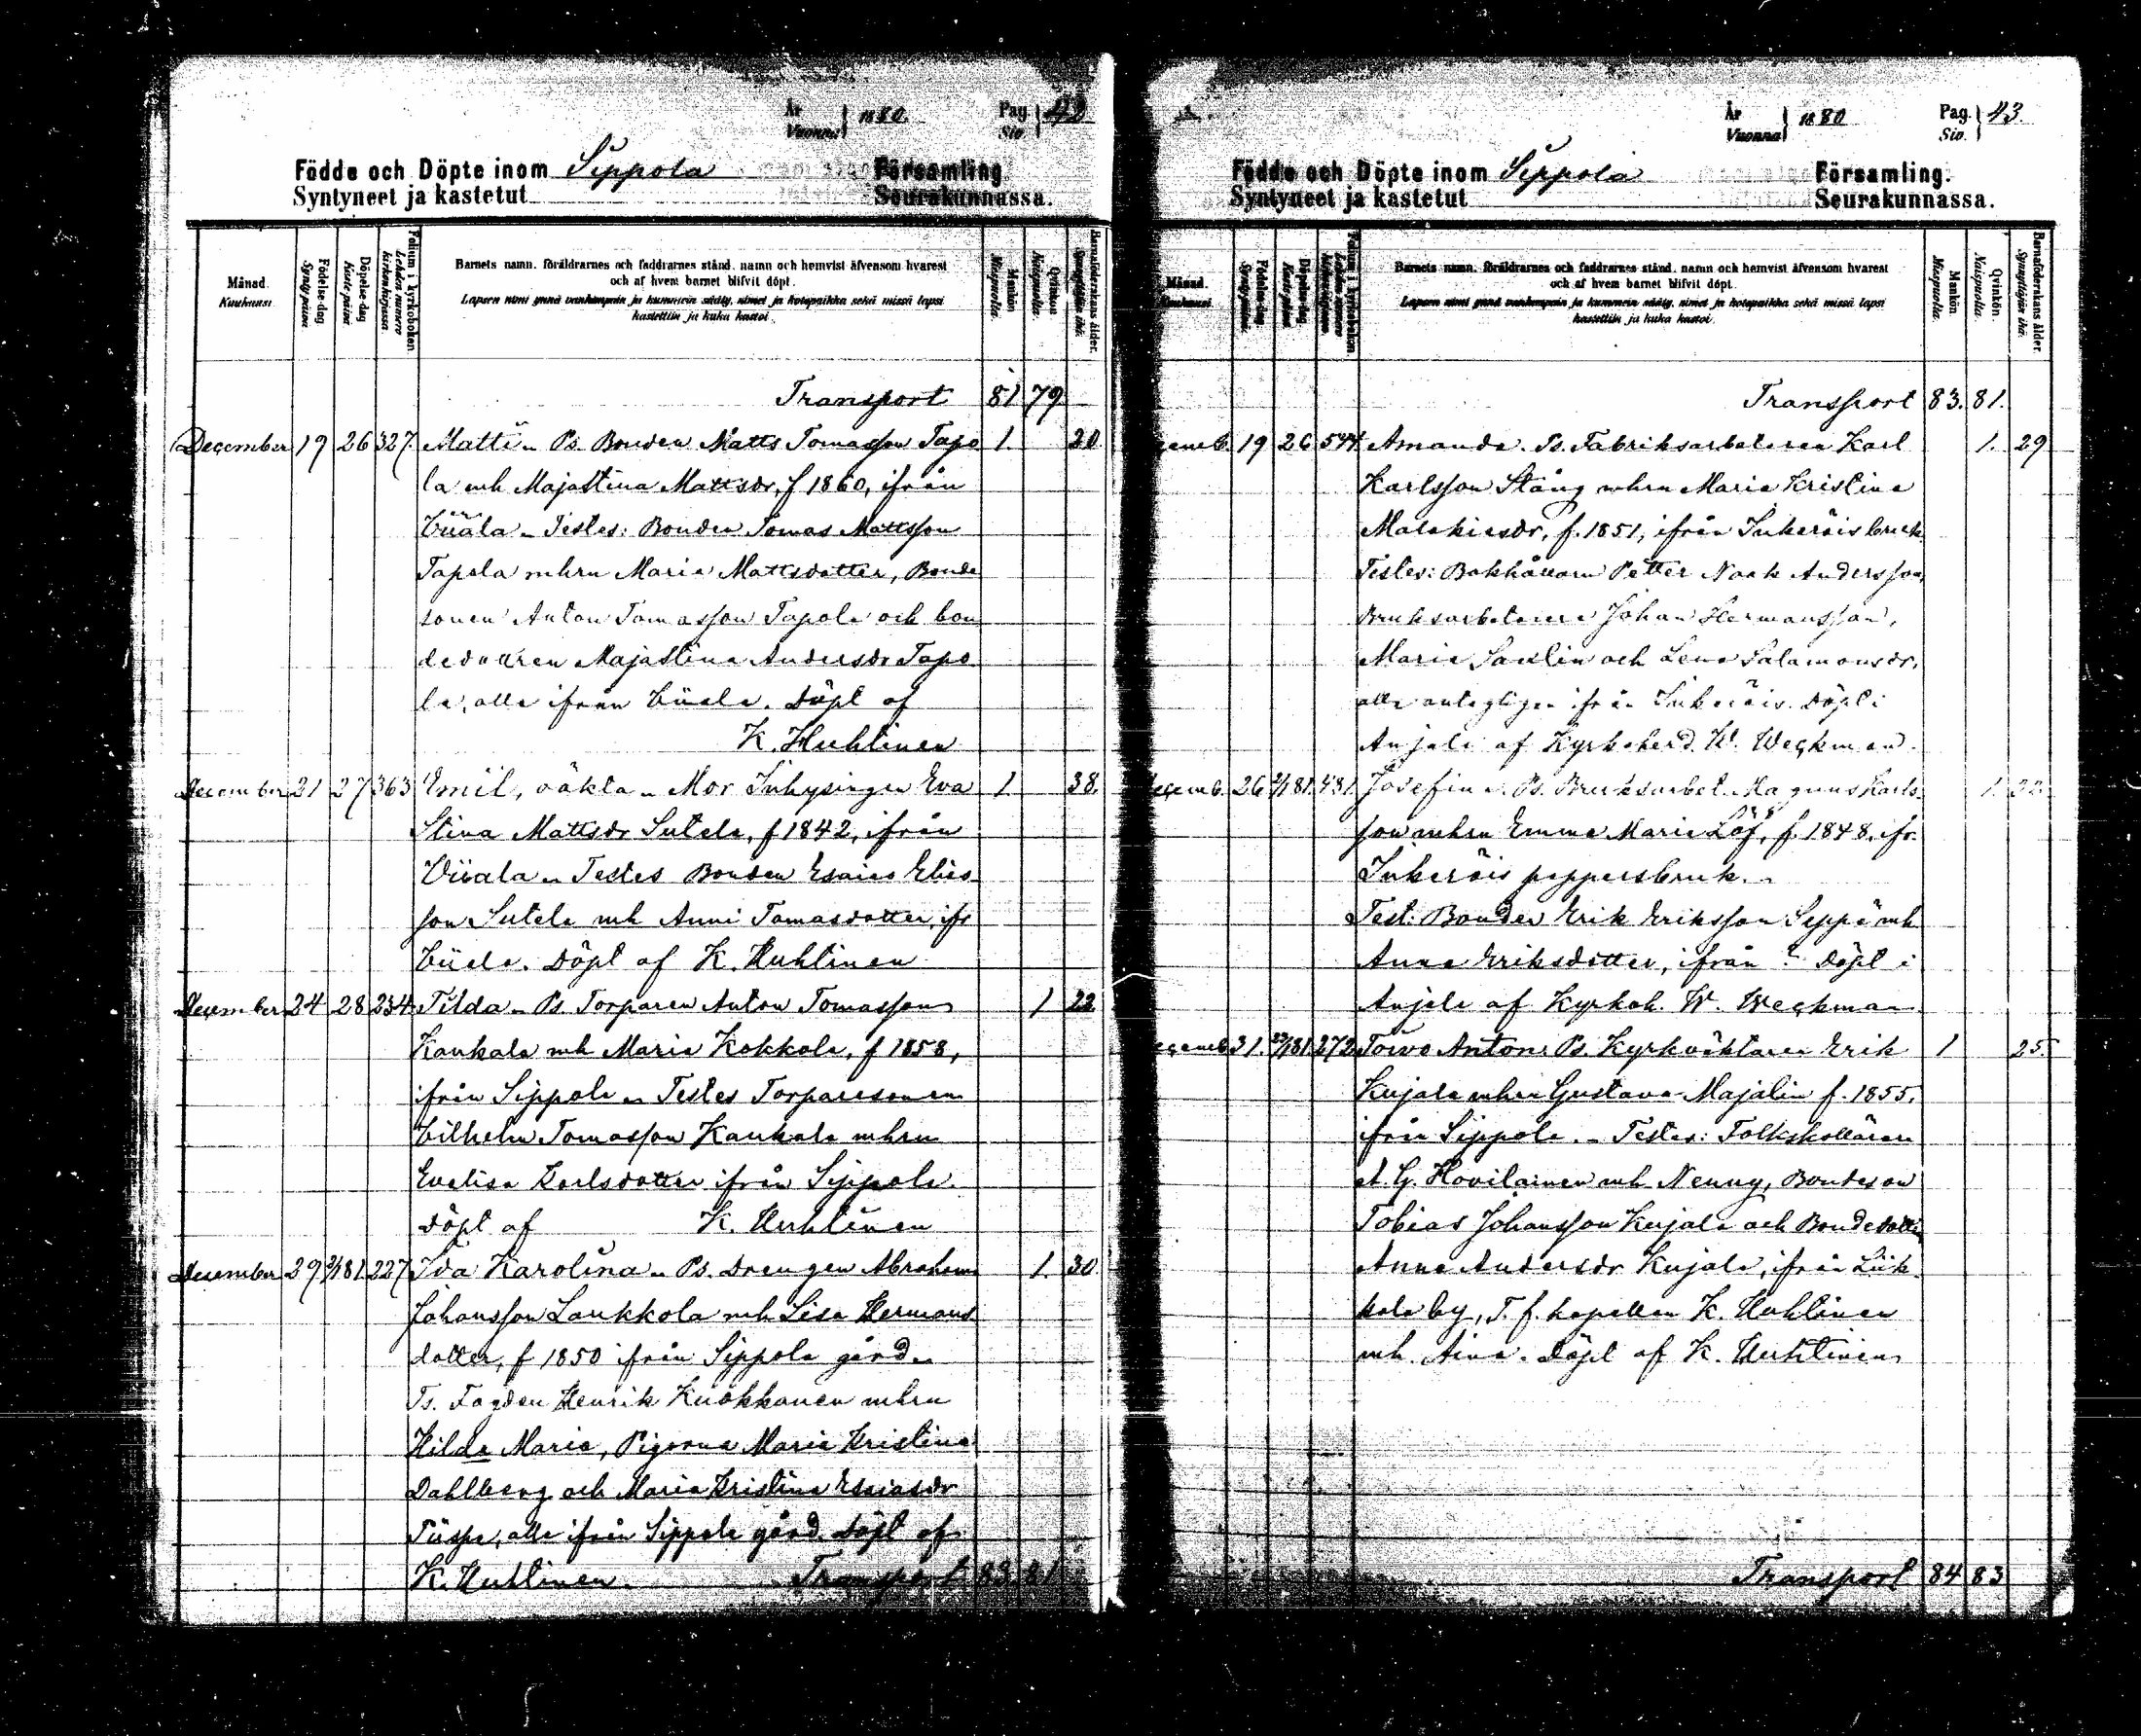 År
Vuonna 1880.
Pag.
Siv. 42
Födde och Döpte inom Sippola Församling.
Syntyneet ja kastetut Seurakunnassa.
Månad.
Kuukausi.
Födelse-dag
Syntypäivä
Döpelse-dag
Kastepäivä
Folium i kyrkoboken
Lehden numero
kirkonkirjassa
Barnets namn, föräldrarnes och faddrarnes stånd, namn och hemvist äfvensom hvarest
och af hvem barnet blifvit döpt.
Lapsen nimi ynnä vanhempain ja kummein sääty, nimet ja kotopaikka sekä missä lapsi
kastettiin ja kuka kastoi.
Mankön
Miespuolia.
Qvinkön
Naispuolia.
Barnaföderskans ålder.
Synnyttäjän ikä.
Transport 81 79
December 19 26 327 Matti. Ps. Bonden Matts Tomasson Tapo 1. 20.
la mh Majastina Mattsdr, f 1860, ifrån
Viiala. Testes: Bonden Tomas Mattsson
Tapola mhru Maria Mattsdotter, Bonde
sonen Anton Tomasson Tapola och bon
dedottren Majastina Andersdr Tapo
la, alla ifrån Viiala. Döpt af
K. Huhtinen
December 21 27 363 Emil, oäkta. Mor Inhysingen Eva 1. 38.
Stina Mattsdr Sutela, f 1842, ifrån
Viiala. Testes Bonden Esaias Elias
son Sutela mh Anni Tomasdotter, ifr
Viiala. Döpt af K. Huhtinen
December 24 28 234 Tilda. Ps. Torparen Anton Tomasson 1 22.
Kaukala mh Maria Kokkola, f 1858,
ifrån Sippola. Testes Torparesonen
Vilhelm Tomasson Kaukala mhru
Evalisa Karlsdotter ifrån Sippola.
Döpt af K. Huhtinen
December 29 2/1 81 227 Ida Karolina. Ps. Drengen Abraham 1. 30.
Johansson Laukkola mh Lisa Hermans
dotter, f 1850 ifrån Sippola gård.
Ts. Fogden Henrik Kuokkanen mhru
Hilda Maria, Pigorna Maria Kristina
Dahlberg och Maria Kristina Esaiasdr
alla ifrån Sippola gård. Döpt af
K. Huhtinen. Transport 83. 81
År
Vuonna 1880
Pag.
Siv. 43.
Födde och Döpte inom Sippola Församling.
Syntyneet ja kastetut Seurakunnassa.
Månad.
Kuukausi.
Födelse-dag
Syntypäivä
Döpelse-dag
Kastepäivä
Folium i kyrkoboken.
Lehden numero
kirkonkirjassa
Barnets namn, föräldrarnes och faddrarnes stånd, namn och hemvist äfvensom hvarest
och af hvem barnet blifvit döpt.
Lapsen nimi ynnä vanhempain ja kummein sääty, nimet ja kotopaikka sekä missä lapsi
kastettiin ja kuka kastoi.
Mankön
Miespuolia.
Qvinkön
Naispuolia.
Barnaföderskans ålder.
Synnyttäjän ikä.
Transport 83. 81.
cemb. 19 26 544 Amanda. Ps. Fabriksarbetaren Karl 1. 29
Karlsson Stång mhru Maria Kristina
Malakiasdr, f. 1851, ifrån Inkeröis bruk.
Testes: Bokhållarn Petter Noak Andersson,
Bruksarbetaren Johan Hermansson,
Maria Saxlin och Lena Salamonsdr,
alla antagligen ifrån Inkeröis. Döpt i
Anjala af Kyrkoherd. W. Weckman.
ecemb. 26 2/1 81. 431. Josefina. Ps. Bruksarbet. Magnus Karls- 1. 32.
son mhru Emma Maria Löf, f. 1848, ifr.
Inkeröis pappersbruk.
Test: Bonden Erik Eriksson Seppä mh
Anna Eriksdotter, ifrån ? Döpt i
Anjala af Kyrkoh. W. Weckman.
ecemb. 31. 81. 272 Toivo Anton. Ps. Kyrkväktaren Erik 1 25.
Kujala mhru Gustava Majalin f. 1855.
ifrån Sippola. Testes: Folkskolläraren
A. G. Hovilainen mh Nenny, Bondeson
Tobias Johansson Kujala och Bondedotter
Anna Andersdr Kujala, ifrån Liik-
kala by, T. f. kapellan K. Huhtinen
mh. Aina. Döpt af K. Huhtinen
Transport 84 83